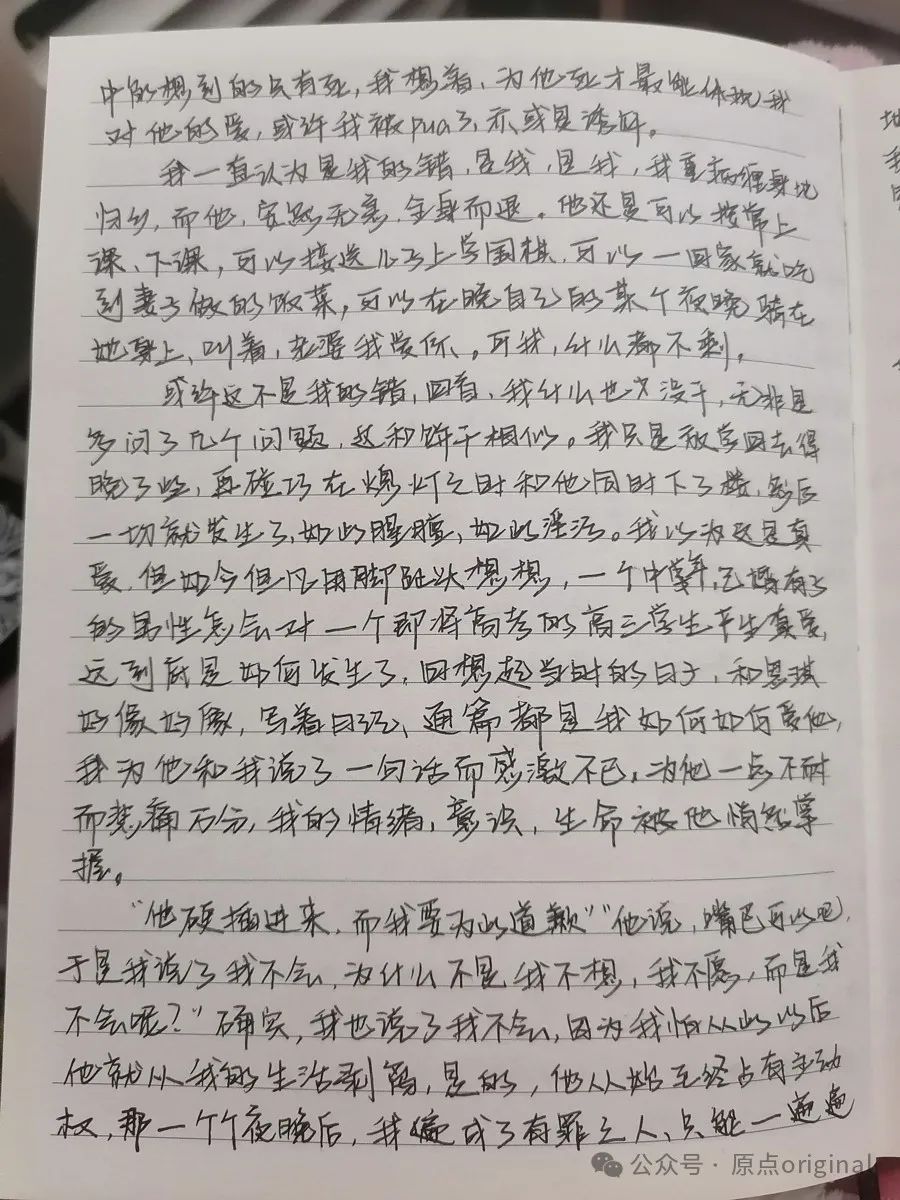 中能想到的只有死，我想着，为他死才最能体现我
对他的爱，或许我被pua了，亦或是诱奸。
我一直认为是我的错，是我，是我，我重病缠身地
归乡，而他，安然无恙，全身而退。他还是可以按常上
课、下课，可以接送儿子上学围棋，可以一回家就吃
到妻子做的饭菜，可以在晚自习的某个夜晚骑在
她身上，叫着，老婆我爱你、。可我，什么都不剩。
或许这不是我的错，回看，我什么也没干，无非是
多问了几个问题，这和饼干相似。我只是放学回去得
晚了些，再碰巧在熄灯之时和他同时下了楼，然后
一切就发生了，如此腥膻，如此淫污。我以为这是真
爱，但如今但凡用脚趾头想想，一个中年，已婚有子
的男性怎会对一个即将高考的高三学生产生真爱，
这到底是如何发生了，回想起当时的日子，和思琪
好像好像，写着日记、通篇都是我如何如何爱他，
我为他和我说了一句话而感激不已，为他一点不耐
而悲痛万分，我的情绪，意识，生命被他悄然掌
握。
“他硬插进来，而我要为此道歉”“他说，嘴巴可以吧，
于是我说了我不会，为什么不是我不想，我不愿，而是我
不会呢？”确实，我也说了我不会，因为我怕从此以后
他就从我的生活剥离，是的，他从始至终占有主动
权，那一个个夜晚后，我便成了有罪之人，只能一遍遍
地
我
公众号 · 原点original